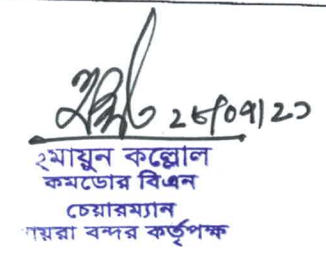 ২৮/০৭/২১
হমায়ুন কল্লোল
কমডোর বিএন
চেয়ারম্যান
পায়রা বন্দর কর্তৃপক্ষ